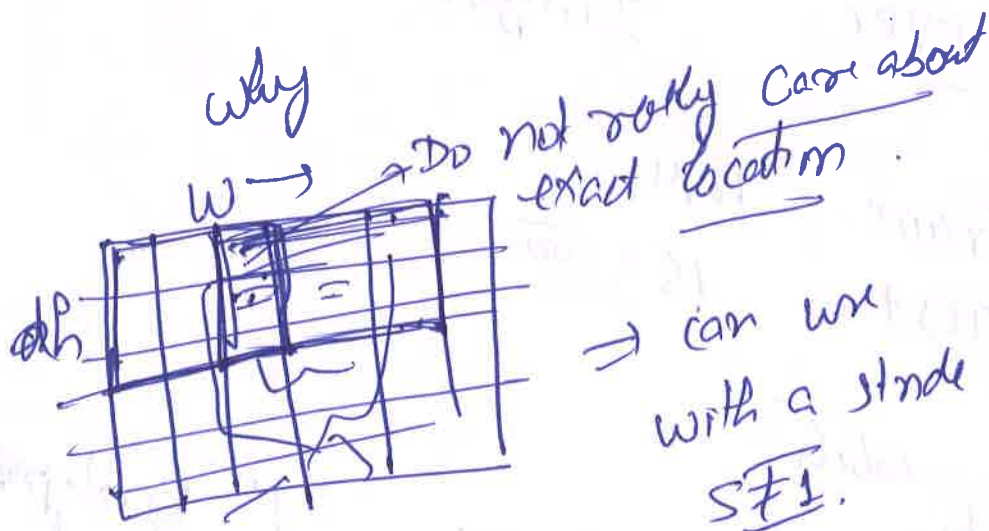 why
Do not really care about
exact location.
W →
h
⇒ can use
with a stride
S≠1.